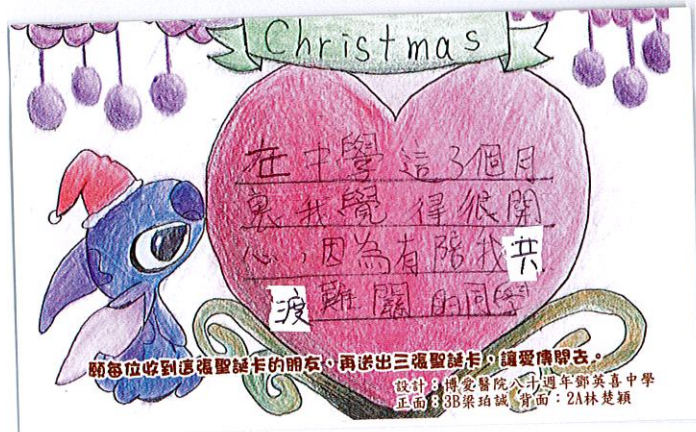 Christmas
在中學這3個月
裏我覺得很開
心，因為有陪我共
渡難關的同學
願每位收到這張聖誕卡的朋友，再送出三張聖誕卡，讓愛傳開去。
設計：博愛醫院八十週年鄧英喜中學
正面：3B梁珀誠 背面：2A林楚穎